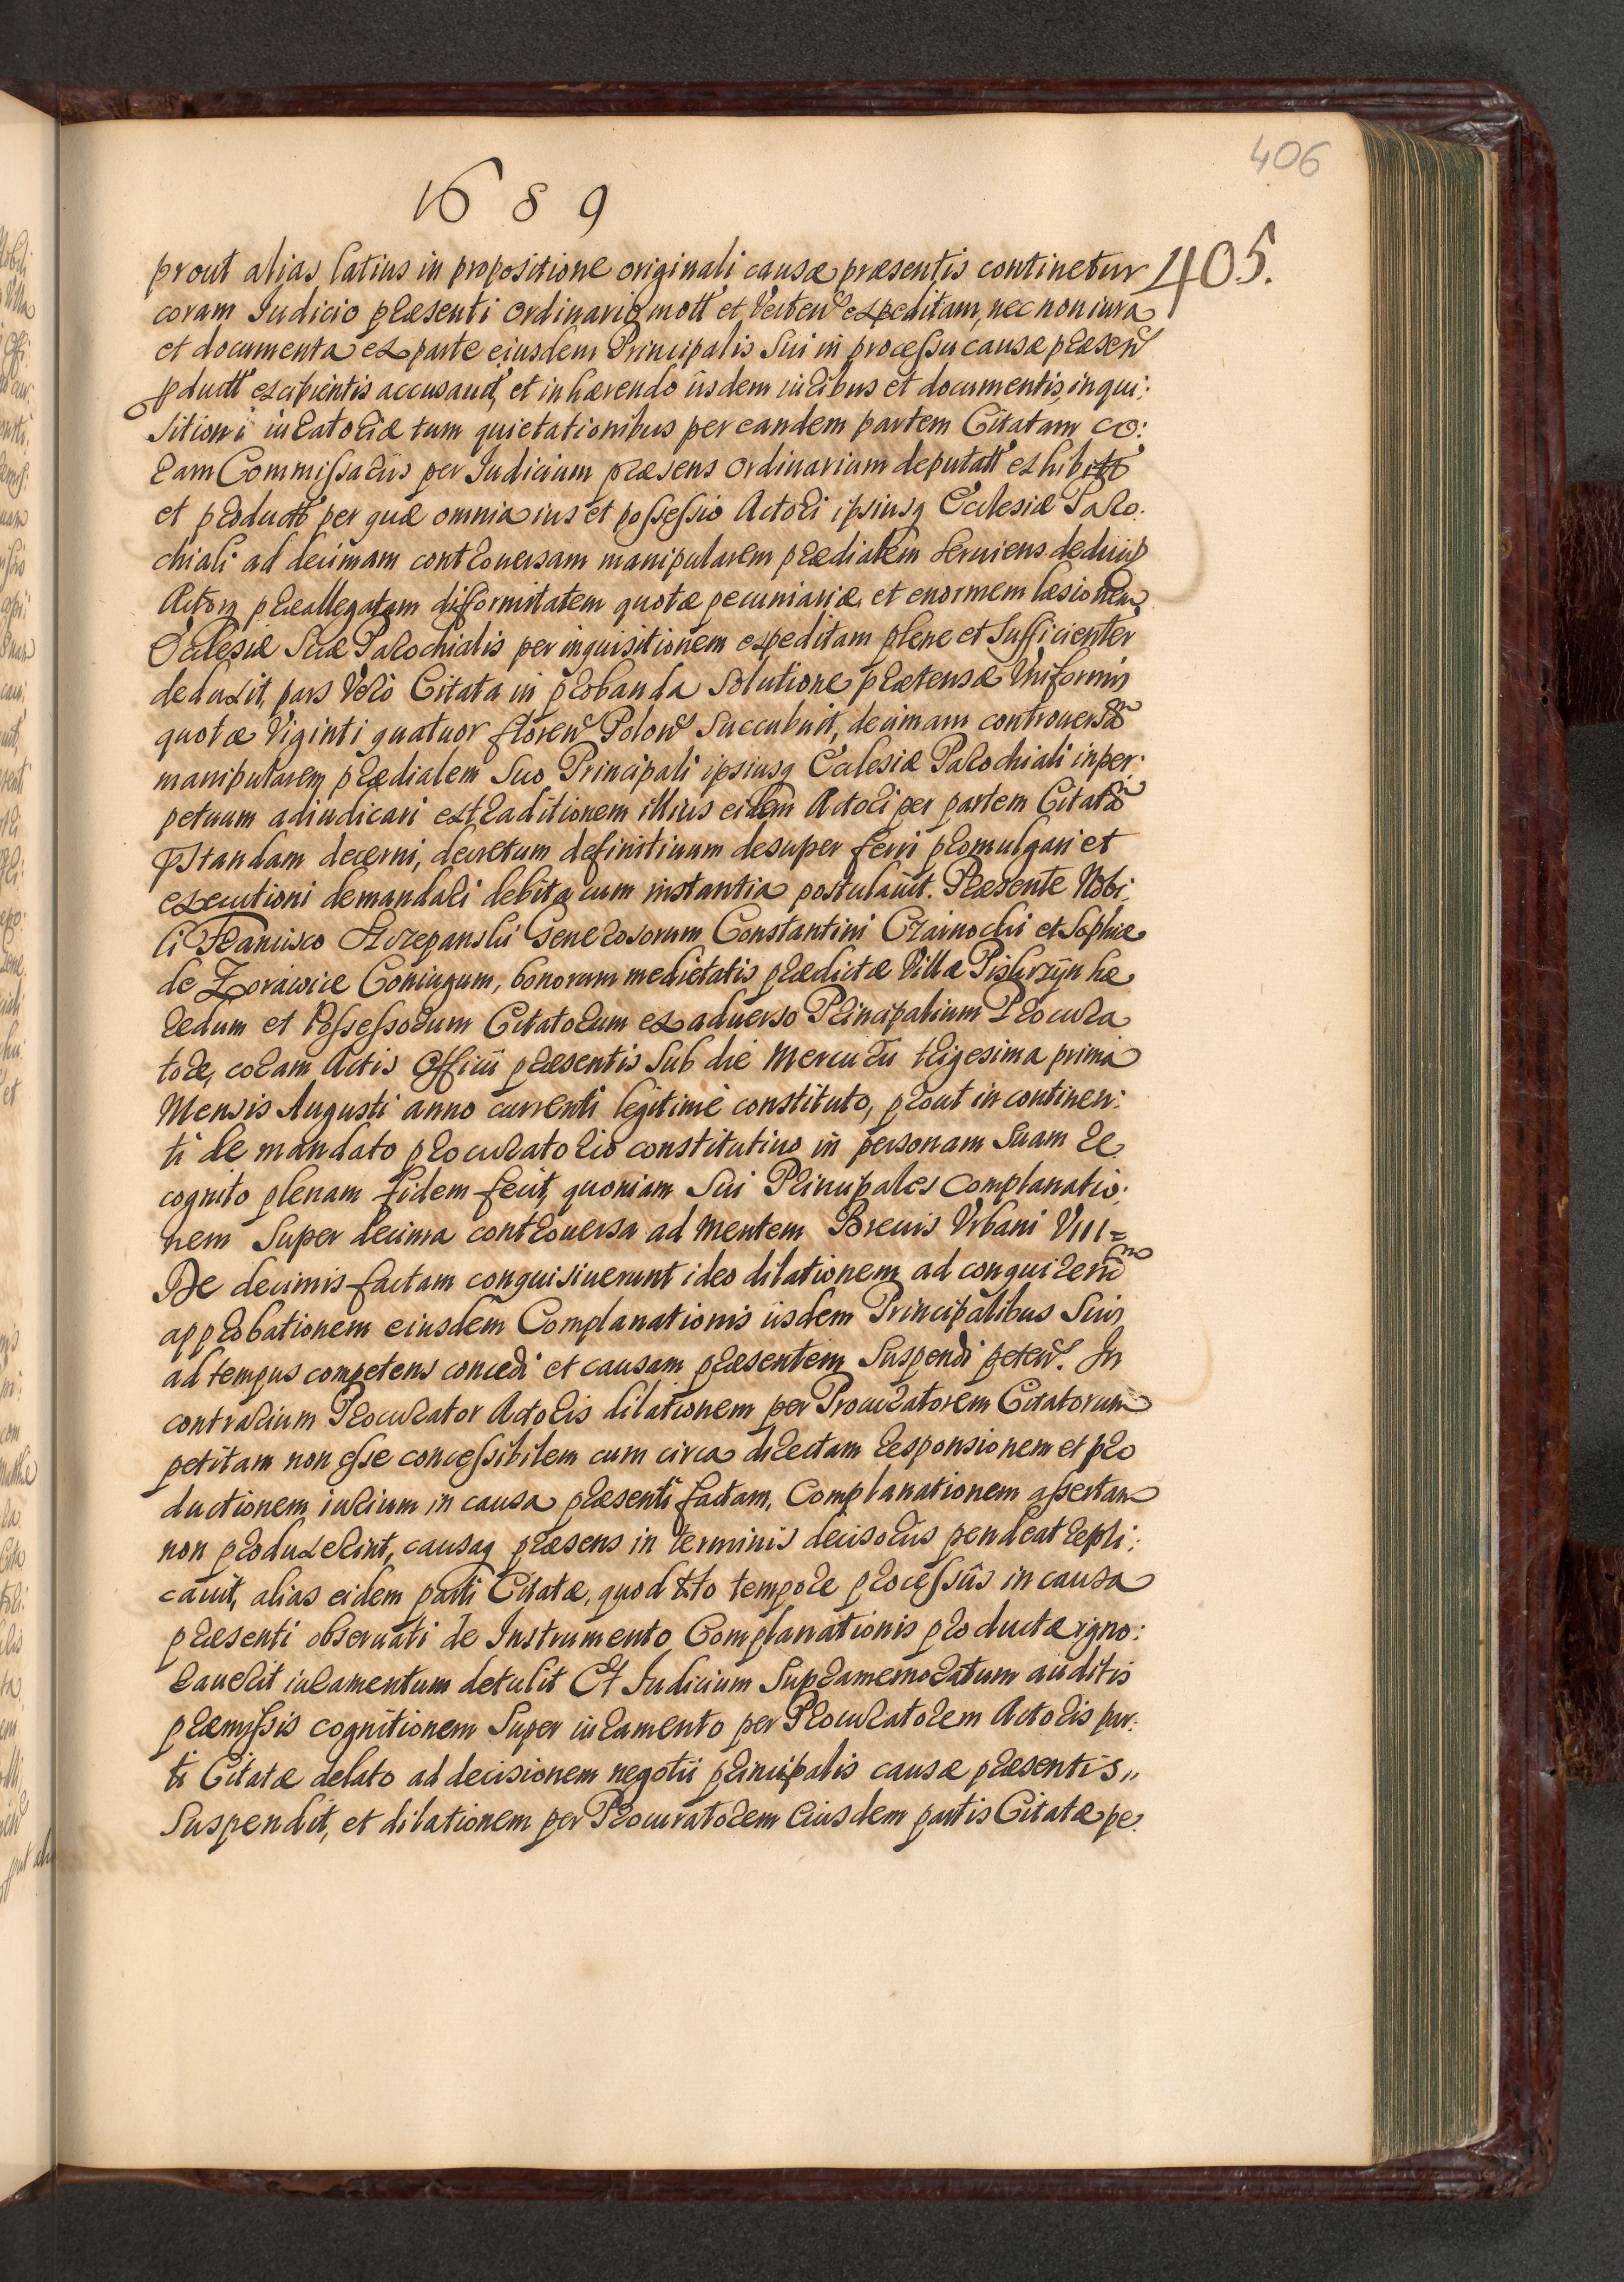 406
1689
405.
prout alias latius in propositione originali causæ præsentis continetur
coram Iudicio præsenti ordinario mott et Verten expeditam, nec non iura
et documenta ex parte eiusdem Principalis Sui in processu causæ præsen
pductt excipientis accusauit, et inhærendo iisdem iuribus et documentis, inqui:
sitioni iuratoriæ tum quietationibus per eandem partem Citatam co:
ram Commissariis per Iudicium præsens ordinarium deputatt exhibitt
et productt per quæ omnia ius et possessio Actori ipsiusq Ecclesiæ Paro:
chiali ad decimam controuersam manipularem prædialem seruiens
Actorq præallegatam difformitatem quotæ pecuniariæ et enormem læsionem
Ecclesiæ Suæ Parochialis per inquisitionem expeditam plene et Sufficienter
deduxit, pars Verò Citata in probanda Solutione prætensæ Uniformis
quotæ Viginti quatuor floren Polon Succubuit, decimam controuersam
manipularem prædialem Suo Principali ipsiusq Ecclesiæ Parochiali in per:
petuum adiudicari extraditionem illius eidem Actori per partem Citatam
pstandam decerni, decretum definitiuum desuper ferri promulgari et
executioni demandari debita cum instantia postulauit. Præsente Nobi:
li Francisco Szczepanski Generosorum Constantini Czarnochi et Sophiæ
de Zorawice Coniugum, bonorum medietatis prædictæ Villæ Piskrzyn hæ
redum et Possessorum Citatorum ex aduerso Principalium Procura
tore, coram Actis Officii præsentis Sub die Mercurii trigesima prima
Mensis Augusti anno currenti legitimè constituto, prout in continen:
ti de mandato procuratorio constitutiuo in personam Suam re
cognito plenam fidem fecit, quoniam Sui Principales Complanatio:
nem Super decima controuersa ad mentem Breuis Urbani VIII=
De decimis factam conquisiuerunt ideo dilationem ad conquirendam
approbationem eiusdem Complanationis iisdem Principalibus Suis
ad tempus competens concedi et causam præsentem Suspendi peten. In
contrarium Procurator Actoris dilationem per Procuratorem Citatorum
petitam non esse concessibilem cum circa directam responsionem et pro
ductionem iurium in causa præsenti factam, Complanationem assertam
non produxerint, causaq præsens in terminis decisoriis pendeat repli:
cauit, alias eidem parti Citatæ, quod toto tempore processûs in causa
præsenti obseruati de Instrumento Complanationis productæ igno:
rauerit iuramentum detulit Et Iudicium Supramemoratum auditis
præmissis cognitionem Super iuramento per Procuratorem Actoris par:
ti Citatæ delato ad decisionem negotii principalis causæ præsentis,,
Suspendit, et dilationem per Procuratorem Eiusdem partis Citatæ pe: